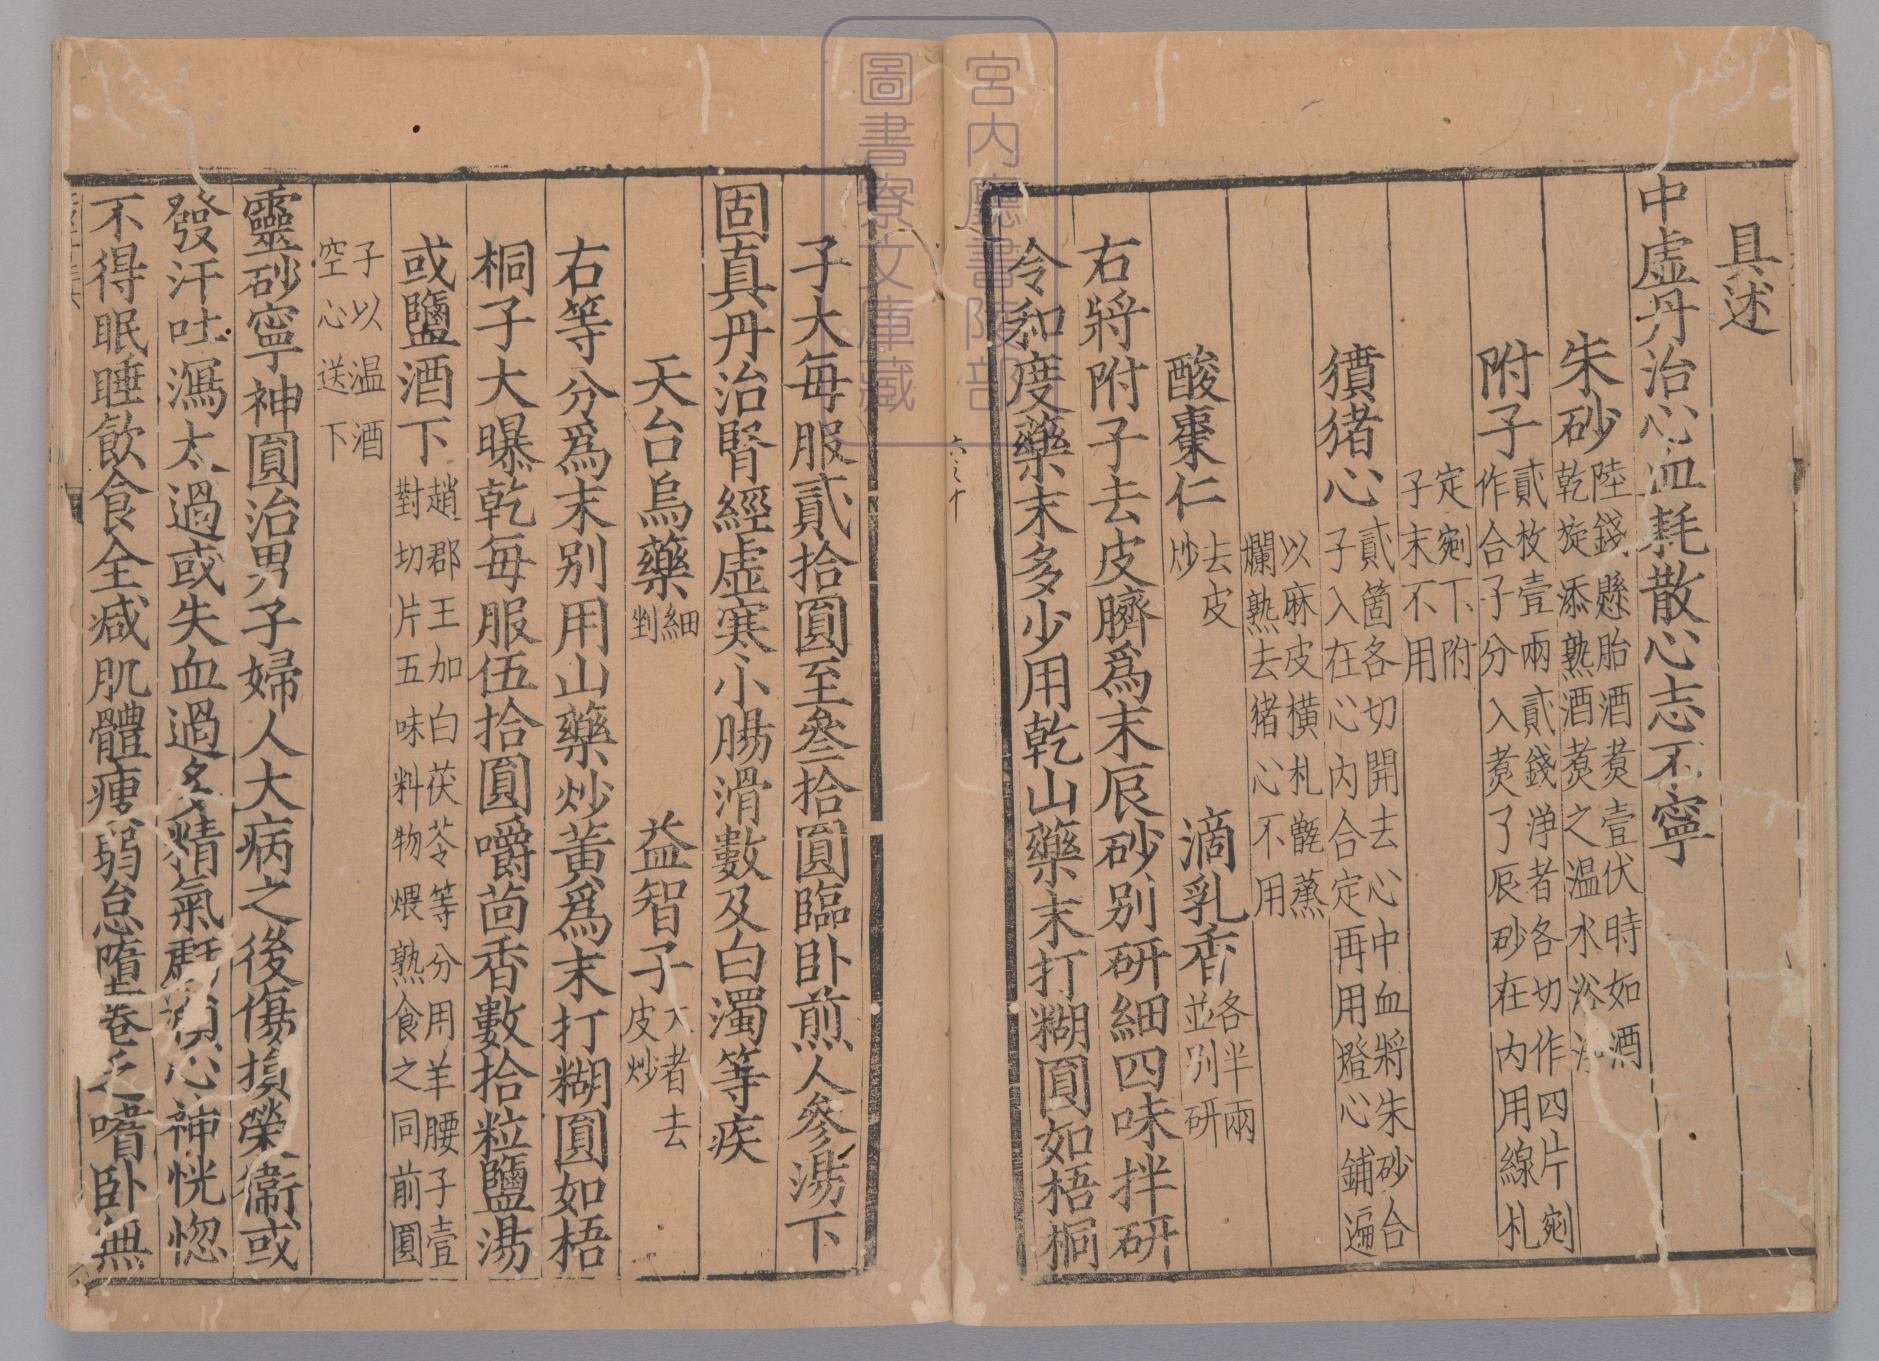 具述
中虛丹治心血耗散心志不寧
朱砂
陸錢懸胎酒煑壹伏時如酒
乾旋添熟酒煑之温水浴
附子
貳枚壹兩貳錢淨者各切作四片剜
作合子分入煑了辰砂在內用線札
定剜下附
子末不用
獖猪心
貳箇各切開去心中血將朱砂合
子入在心內合定再用燈心鋪遍
以麻皮橫札甑蒸
爛熟去猪心不用
酸棗仁
去皮
炒
滴乳香
各半兩
並別研
右將附子去皮臍爲末辰砂別研細四味拌研
令和度藥末多少用乾山藥末打糊圓如梧桐
六之十
子大每服貳拾圓至叄拾圓臨卧煎人參湯下
固真丹治腎經虛寒小腸滑數及白濁等疾
天台烏藥
細
剉
益智子
大者去
皮炒
右等分爲末别用山藥炒黃爲末打糊圓如梧
桐子大曝乾每服伍拾圓嚼茴香數拾粒鹽湯
或鹽酒下
趙郡王加白茯苓等分用羊腰子壹
對切片五味料物煨熟食之同前圓
子以温酒
空心送下
靈砂寧神圓治男子婦人大病之後傷損榮衞或
發汗吐瀉太過或失血過多精氣心神恍惚
不得眠睡飲食全减肌體瘦弱怠墮卷乏嗜卧無
宮内廳書陵部
圖書寮文庫藏